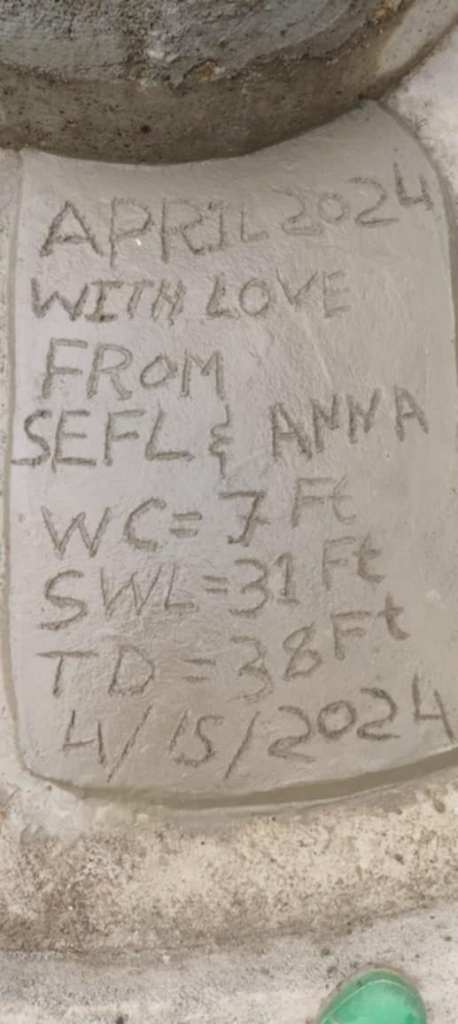 APRIL 2024
WITH LOVE
FROM
SEFL & ANNA
WC=7 Ft
SWL=31 Ft
TD=38Ft
4/15/2024